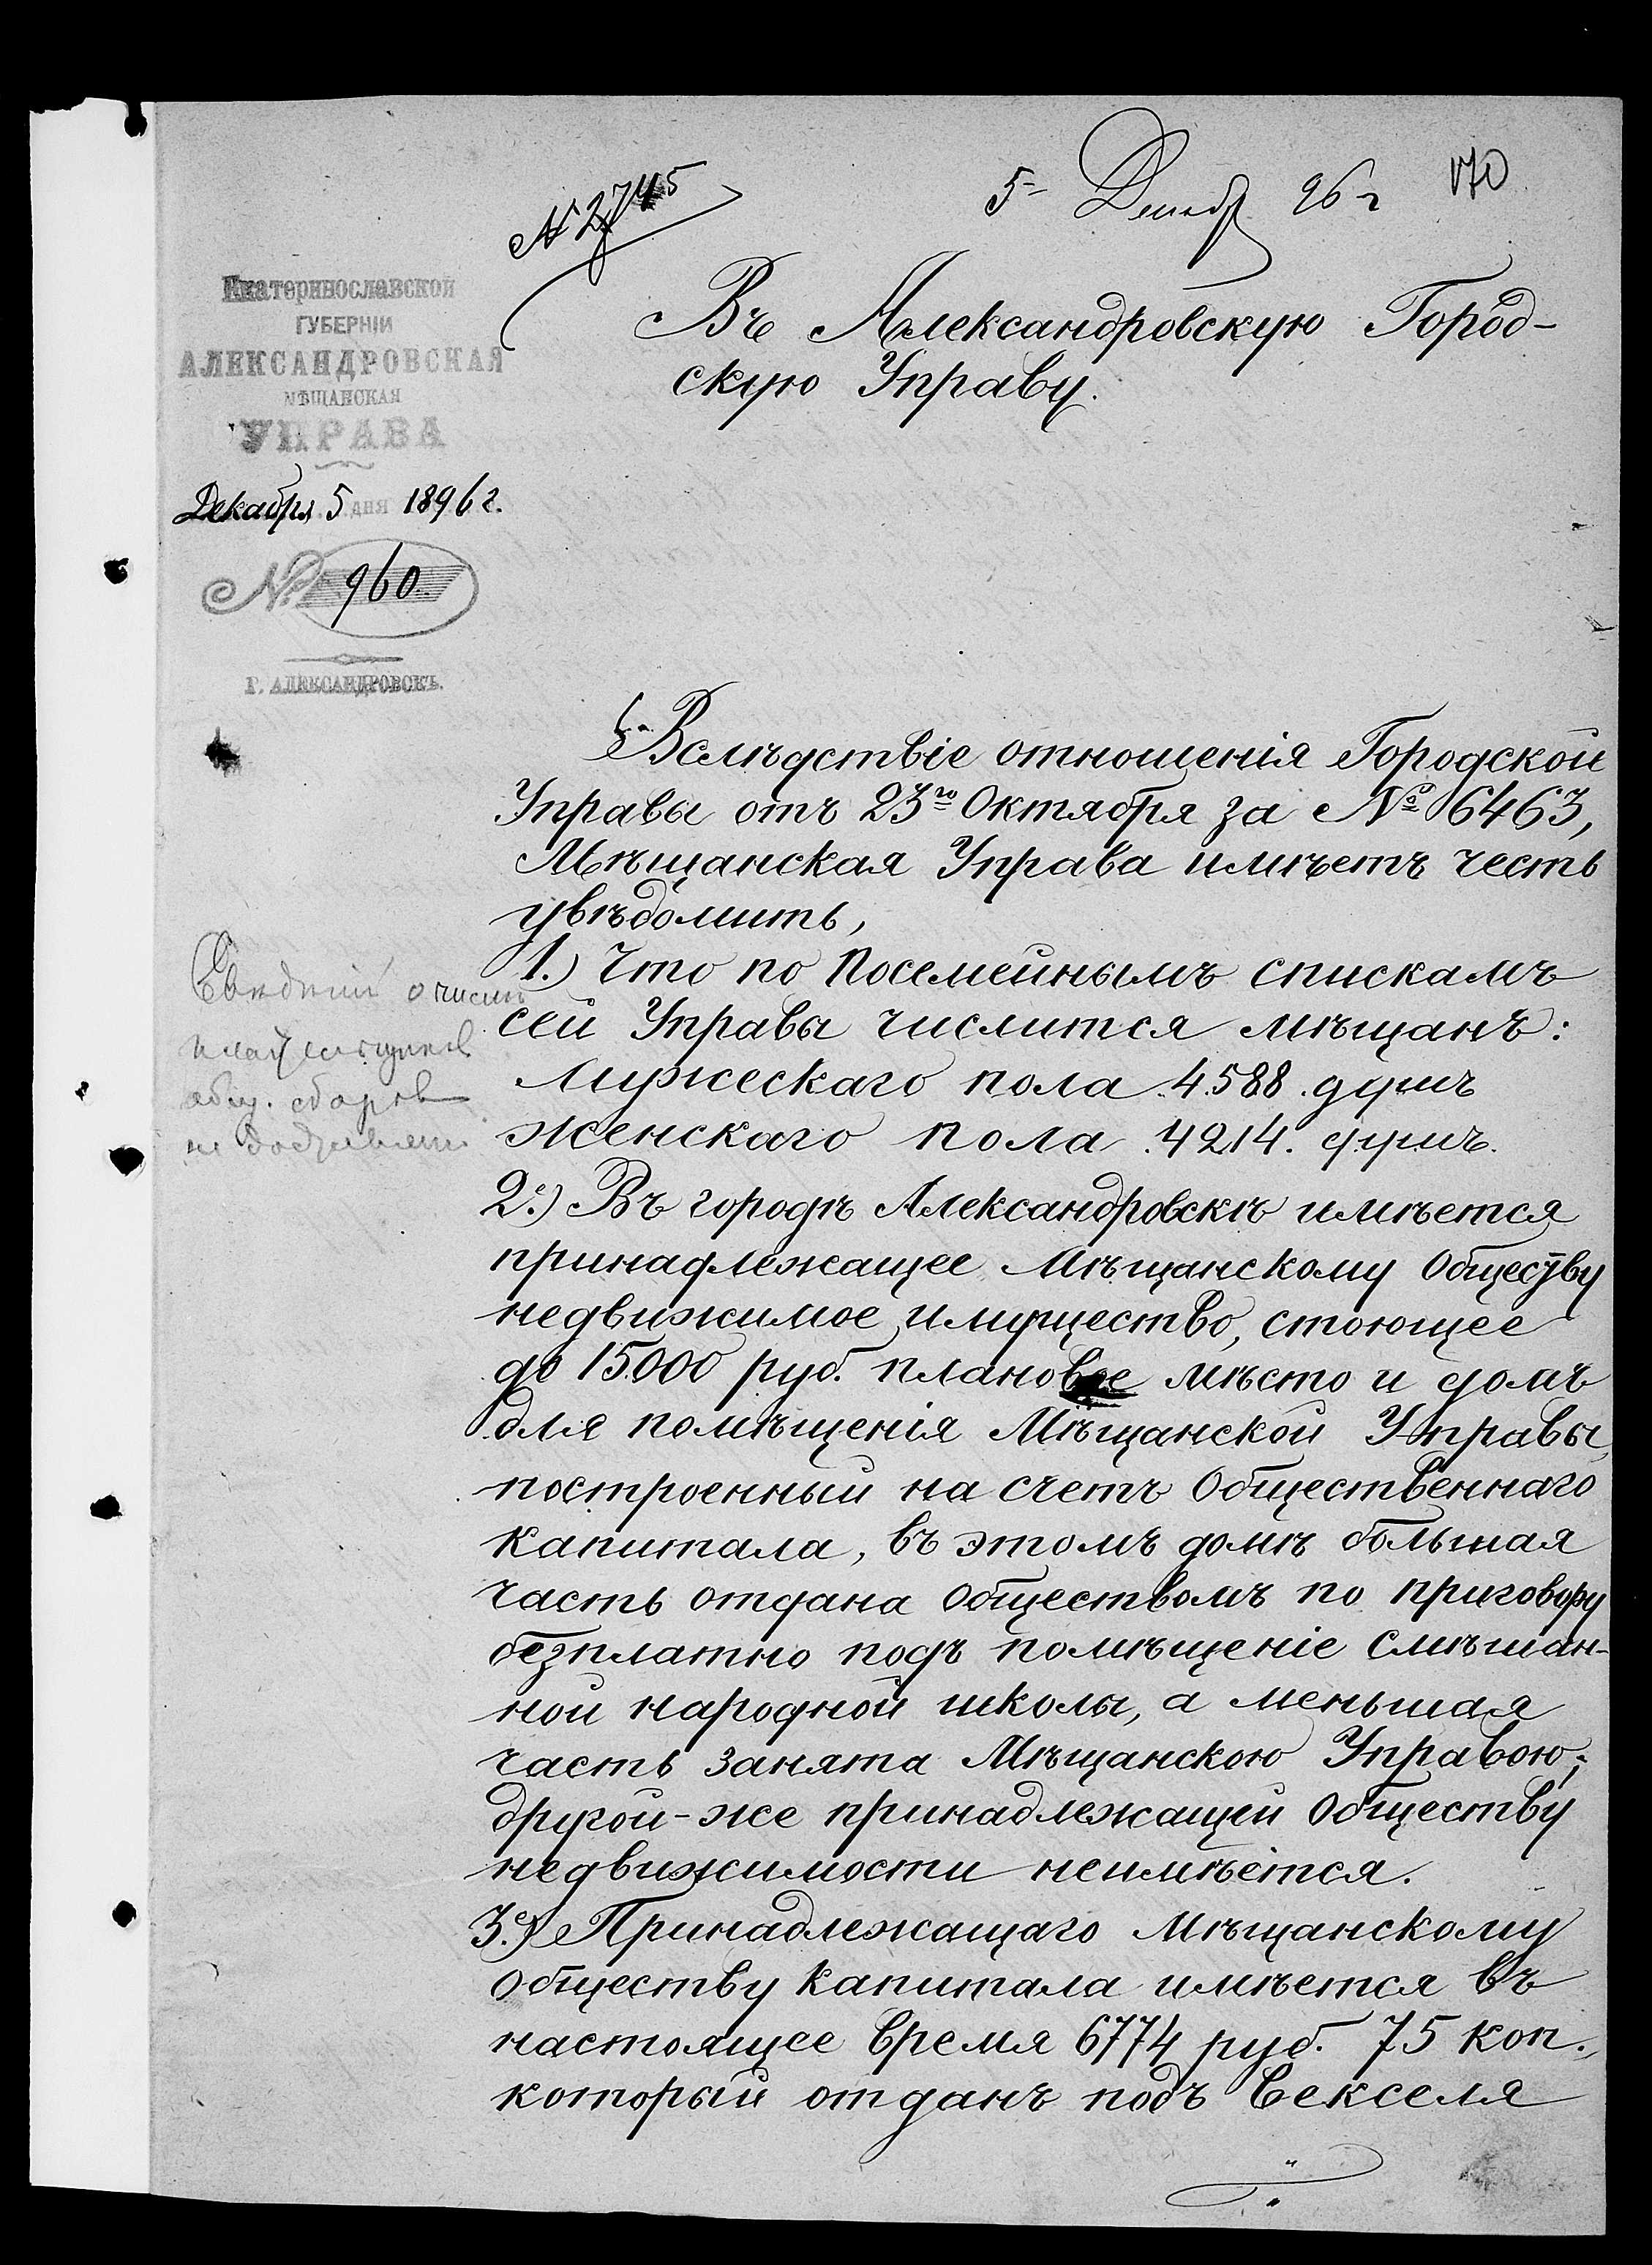 № 2745
5 Декабр 96 г
170
Екатеринославской
ГУБЕРНІИ
АЛЕКСАНДРОВСКАЯ
МѢЩАНСКАЯ
УПРАВА
Декабря 5 дня 1896 г.
№ 960.
Г. АЛЕКСАНДРОВСКЪ.
Въ Александровскую Город-
скую Управу.
Вслѣдствіе отношенія Городской
Управы отъ 23го Октября за № 6463,
Мѣщанская Управа имѣетъ честь
увѣдомить,
1.) Что по посемейнымъ спискамъ
сей Управы числится мѣщанъ:
Мужескаго пола 4588 душъ
женскаго пола 4214. душъ.
2.) Въ городѣ Александровскѣ имѣется
принадлежащее Мѣщанскому Обществу
недвижимое имущество, стоющее
до 15000 руб. плановое мѣсто и домъ
для помѣщенія Мѣщанской Управы,
построенный на счетъ Общественнаго
капитала, въ этомъ домѣ большая
часть отдана Обществомъ по приговору
безплатно подъ помѣщеніе смѣшан-
ной народной школы, а меньшая
часть занята Мѣщанскою Управою;
другой-же принадлежащей Обществу
недвижимости неимѣется.
3.) Принадлежащаго Мѣщанскому
Обществу капитала имѣется въ
настоящее время 6774 руб. 75 коп.,
который отданъ подъ векселя
Сведеній о числѣ
общ. сборов
не